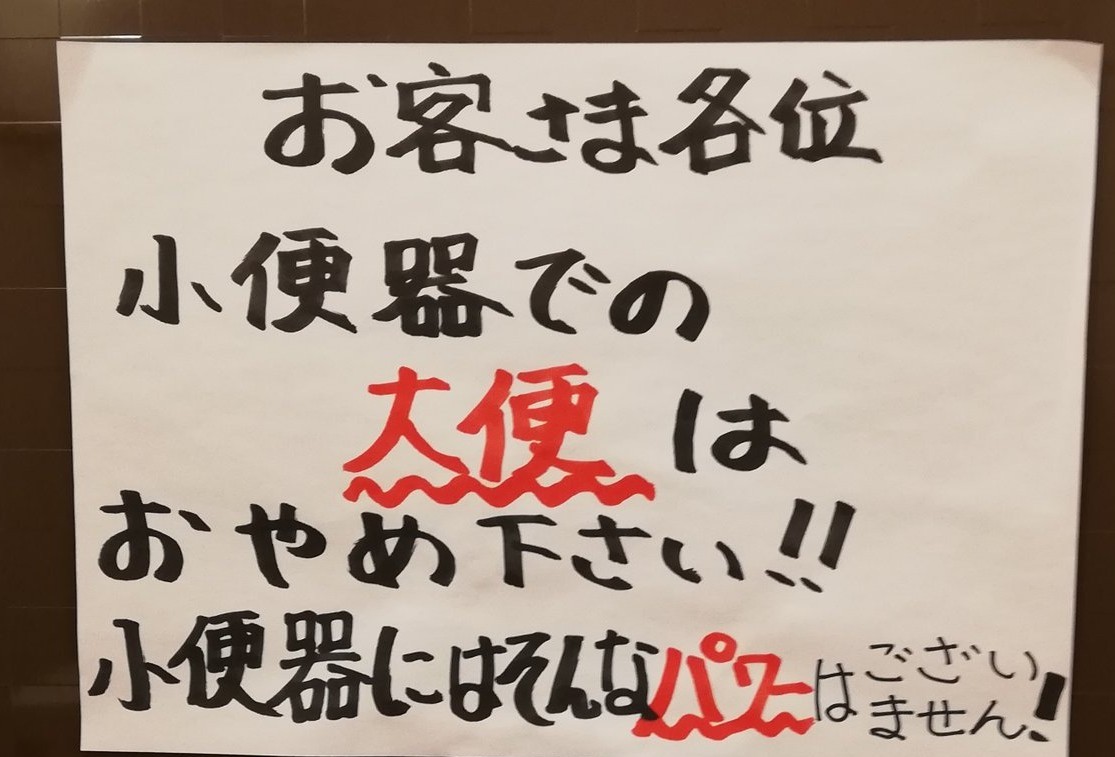 お客さま各位
小便器での
大便は
おやめ下さい!!
小便器にはそんなパワーはございません!